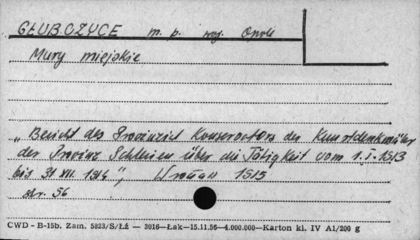 GŁUBCZYCE m. p. woj. Opole
Mury miejskie
„Bericht des Provinzial Konservators der Kunstdenkmäler
der Provinz Schlesien über die Tätigkeit vom 1.I.1913
bis 31 XII. 1914", 1915
str. 56
CWD - B-15b. Zam. 5823/S/Łż — 3016—Łak—15.11.56—4.000.000—Karton kl. IV A1/200 g